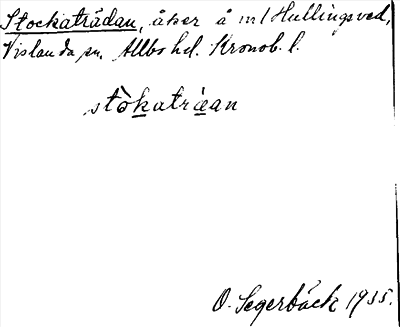 Stockaträdan, åker å m/ Hullingsved,
Vislanda sn. Allbo hd. Kronob. l.
stòkatràan
O. Segerbäck 1935.